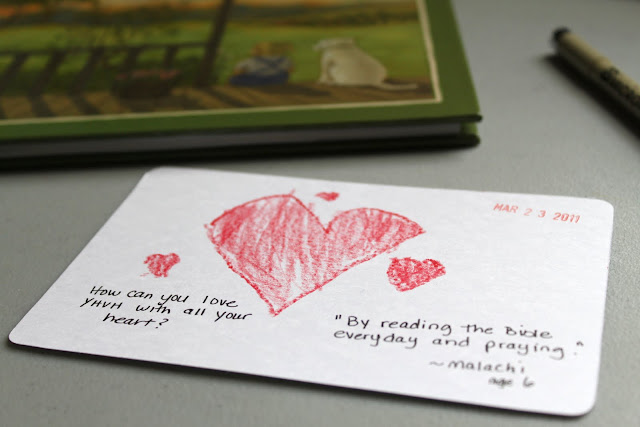 MAR 23 2011
How can you love
YHVH with all your
heart?
"By reading the Bible
everyday and praying."
~Malachi
age 6